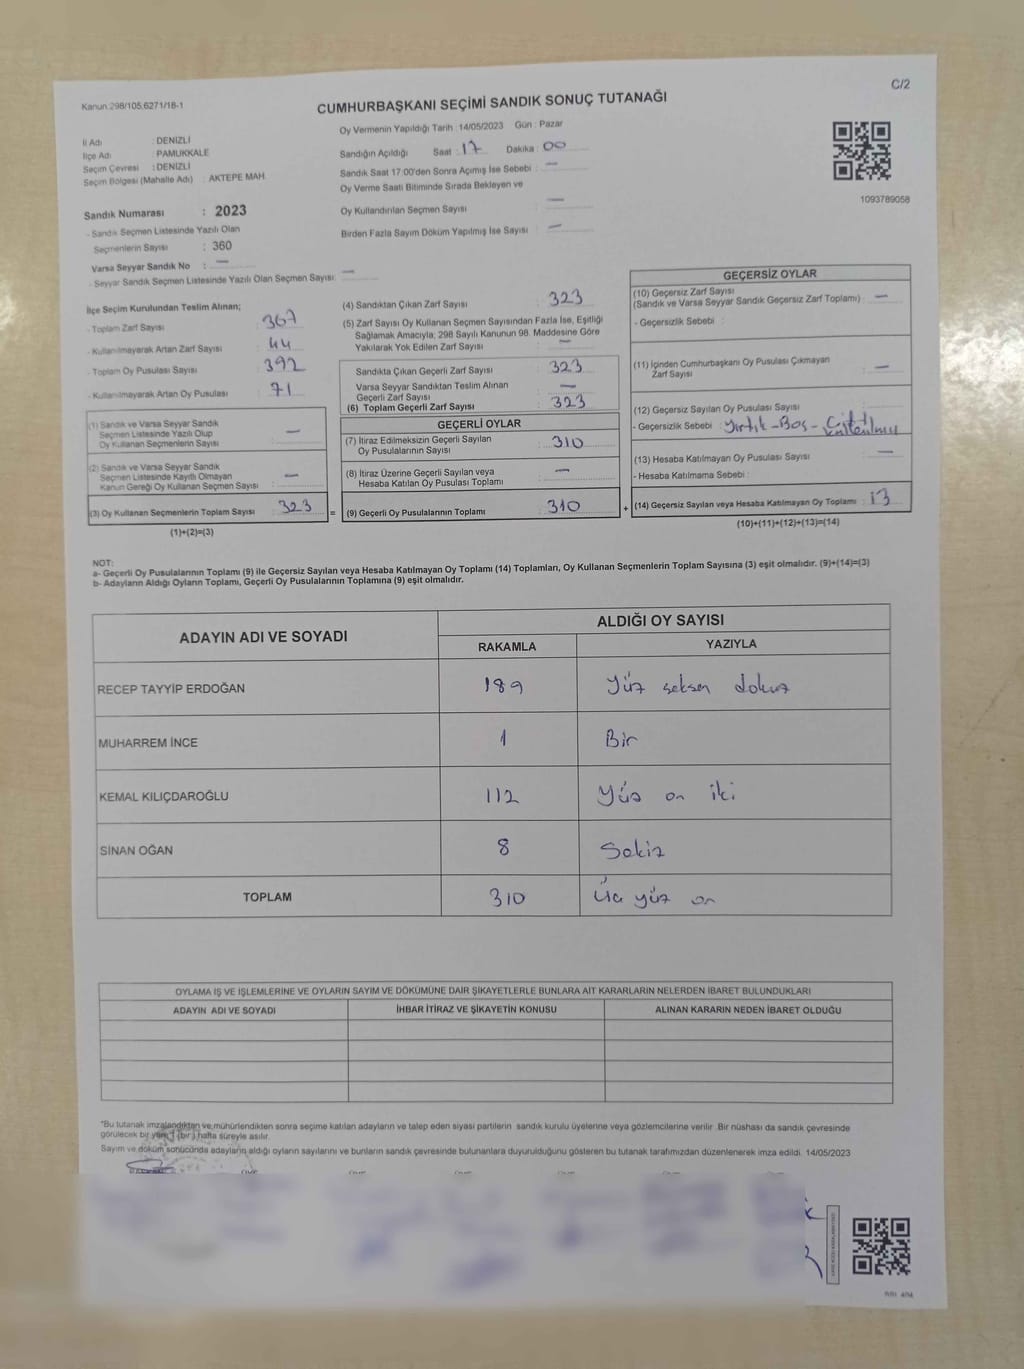 C/2
Kanun 298/105,6271/18-1
CUMHURBAŞKANI SEÇİMİ SANDIK SONUÇ TUTANAĞI
Oy Vermenin Yapıldığı Tarih :14/05/2023 Gün : Pazar
İl Adı : DENİZLİ
İlçe Adı : PAMUKKALE
Seçim Çevresi : DENİZLİ
Seçim Bölgesi (Mahalle Adı) : AKTEPE MAH.
Sandık Numarası : 2023
- Sandık Seçmen Listesinde Yazılı Olan
Seçmenlerin Sayısı : 360
Varsa Seyyar Sandık No : —
- Seyyar Sandık Seçmen Listesinde Yazılı Olan Seçmen Sayısı: —
Sandığın Açıldığı Saat : 17 Dakika : 00
Sandık Saat 17:00'den Sonra Açımış İse Sebebi : —
Oy Verme Saati Bitiminde Sırada Bekleyen ve
Oy Kullandırılan Seçmen Sayısı : —
Birden Fazla Sayım Döküm Yapılmış İse Sayısı : —
1093789058
İlçe Seçim Kurulundan Teslim Alınan;
- Toplam Zarf Sayısı : 367
- Kullanılmayarak Artan Zarf Sayısı : 44
- Toplam Oy Pusulası Sayısı : 392
- Kullanılmayarak Artan Oy Pusulası : 71
(1) Sandık ve Varsa Seyyar Sandık
Seçmen Listesinde Yazılı Olup
Oy Kullanan Seçmenlerin Sayısı : —
(2) Sandık ve Varsa Seyyar Sandık
Seçmen Listesinde Kayıtlı Olmayan
Kanun Gereği Oy Kullanan Seçmen Sayısı : —
(3) Oy Kullanan Seçmenlerin Toplam Sayısı : 323
(1)+(2)=(3)
(4) Sandıktan Çıkan Zarf Sayısı : 323
(5) Zarf Sayısı Oy Kullanan Seçmen Sayısından Fazla İse, Eşitliği
Sağlamak Amacıyla; 298 Sayılı Kanunun 98. Maddesine Göre
Yakılarak Yok Edilen Zarf Sayısı : —
Sandıkta Çıkan Geçerli Zarf Sayısı : 323
Varsa Seyyar Sandıktan Teslim Alınan
Geçerli Zarf Sayısı : —
(6) Toplam Geçerli Zarf Sayısı : 323
GEÇERLİ OYLAR
(7) İtiraz Edilmeksizin Geçerli Sayılan
Oy Pusulalarının Sayısı : 310
(8) İtiraz Üzerine Geçerli Sayılan veya
Hesaba Katılan Oy Pusulası Toplamı : —
=
(9) Geçerli Oy Pusulalarının Toplamı : 310
+
GEÇERSİZ OYLAR
(10) Geçersiz Zarf Sayısı
(Sandık ve Varsa Seyyar Sandık Geçersiz Zarf Toplamı) : —
- Geçersizlik Sebebi :
(11) İçinden Cumhurbaşkanı Oy Pusulası Çıkmayan
Zarf Sayısı : —
(12) Geçersiz Sayılan Oy Pusulası Sayısı :
- Geçersizlik Sebebi : Yırtık-Boş-
(13) Hesaba Katılmayan Oy Pusulası Sayısı : —
- Hesaba Katılmama Sebebi :
(14) Geçersiz Sayılan veya Hesaba Katılmayan Oy Toplamı : 13
(10)+(11)+(12)+(13)=(14)
NOT:
a- Geçerli Oy Pusulalarının Toplamı (9) ile Geçersiz Sayılan veya Hesaba Katılmayan Oy Toplamı (14) Toplamları, Oy Kullanan Seçmenlerin Toplam Sayısına (3) eşit olmalıdır. (9)+(14)=(3)
b- Adayların Aldığı Oyların Toplamı, Geçerli Oy Pusulalarının Toplamına (9) eşit olmalıdır.
ADAYIN ADI VE SOYADI
ALDIĞI OY SAYISI
RAKAMLA YAZIYLA
RECEP TAYYİP ERDOĞAN 189 Yüz seksen dokuz
MUHARREM İNCE 1 Bir
KEMAL KILIÇDAROĞLU 112 Yüz on iki
SİNAN OĞAN 8 Sekiz
TOPLAM 310 Üç yüz on
OYLAMA İŞ VE İŞLEMLERİNE VE OYLARIN SAYIM VE DÖKÜMÜNE DAİR ŞİKAYETLERLE BUNLARA AİT KARARLARIN NELERDEN İBARET BULUNDUKLARI
ADAYIN ADI VE SOYADI İHBAR İTİRAZ VE ŞİKAYETİN KONUSU ALINAN KARARIN NEDEN İBARET OLDUĞU
*Bu tutanak imzalandıktan ve mühürlendikten sonra seçime katılan adayların ve talep eden siyasi partilerin sandık kurulu üyelerine veya gözlemcilerine verilir. Bir nüshası da sandık çevresinde
görülecek bir yere 1 (bir) hafta süreyle asılır.
Sayım ve döküm sonucunda adayların aldığı oyların sayılarını ve bunların sandık çevresinde bulunanlara duyurulduğunu gösteren bu tutanak tarafımızdan düzenlenerek imza edildi. 14/05/2023